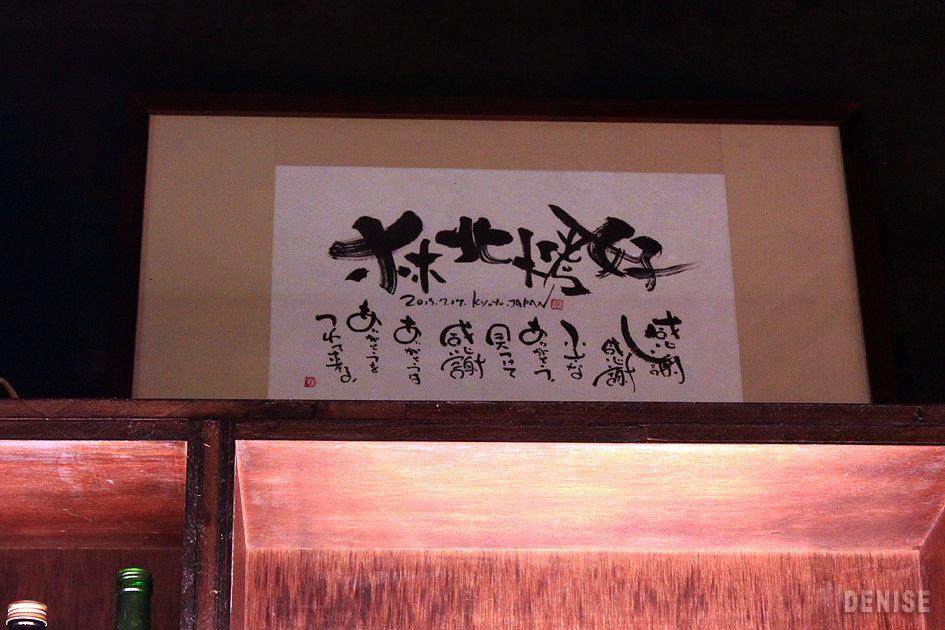 林北烤好
2015.7.17. Kyoto JAPAN
感謝
し
感謝
小さな
ありがとう、
見つけて
感謝
ありがとうは
ありがとうを
つれて来る。
DENISE